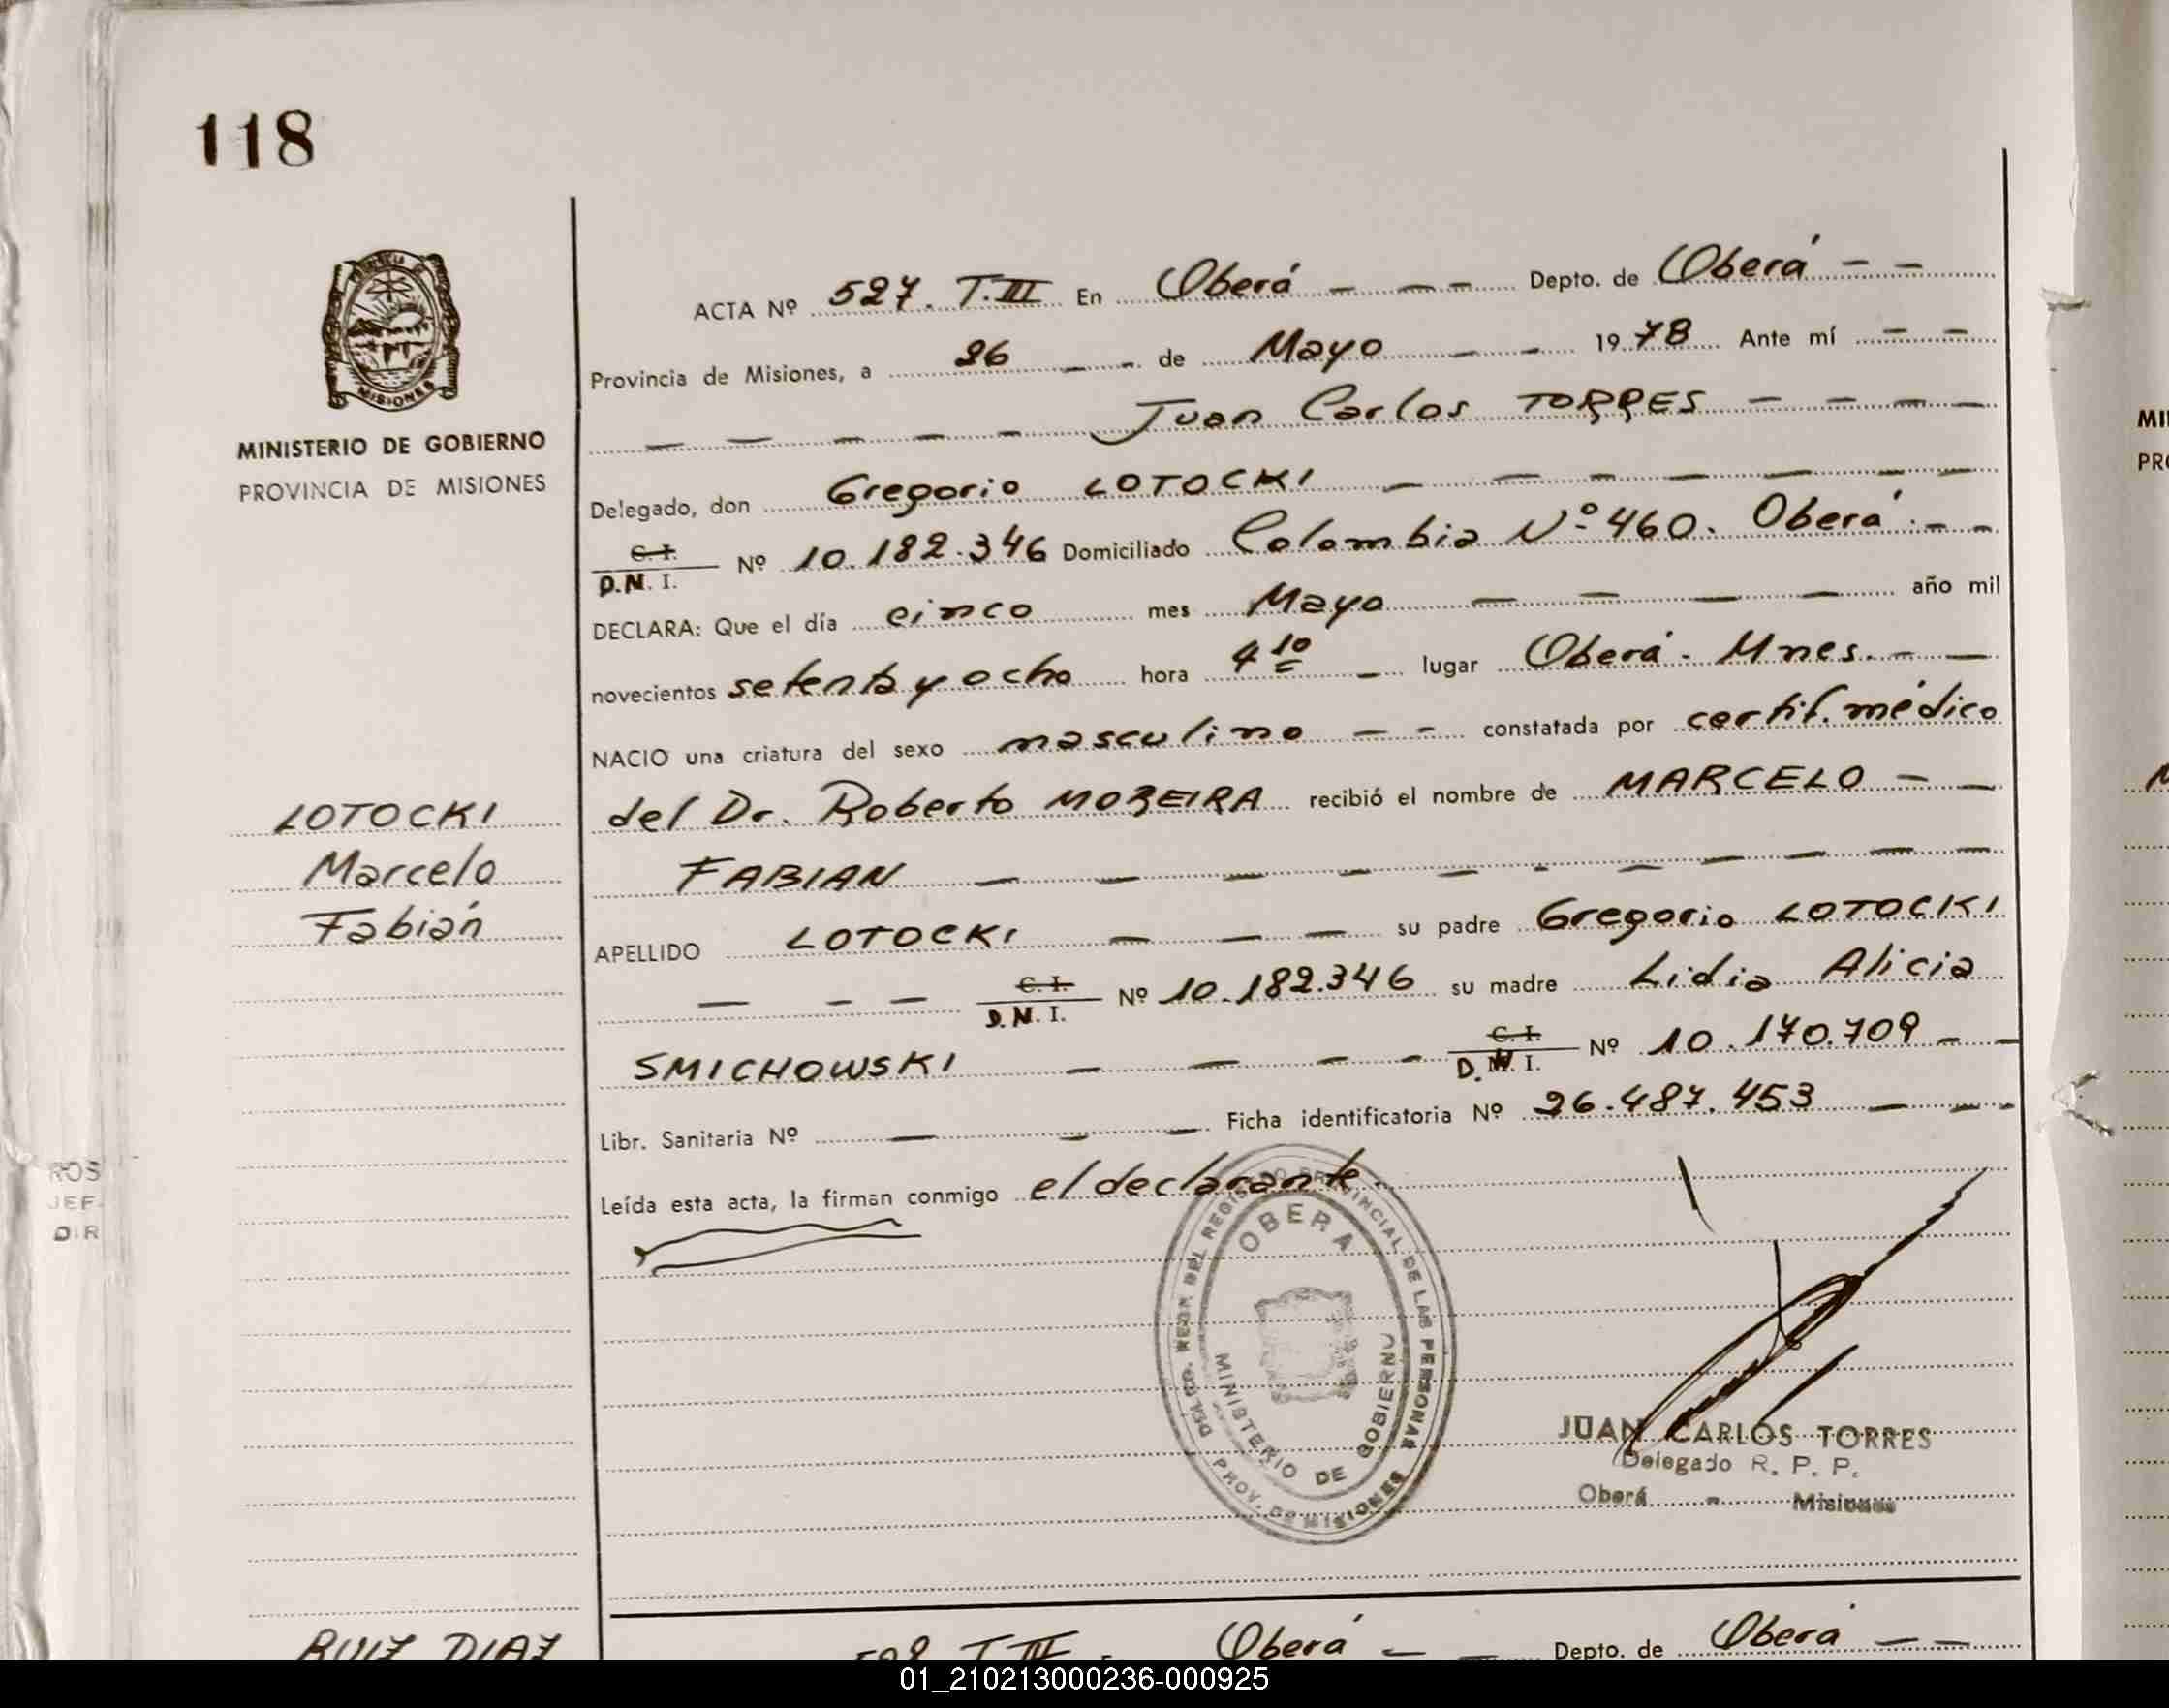 118
MINISTERIO DE GOBIERNO
PROVINCIA DE MISIONES
ACTA Nº 527. T.III En Oberá Depto. de Oberá
Provincia de Misiones, a 26 de Mayo 1978 Ante mí
Juan Carlos TORRES
Delegado, don Gregorio LOTOCKI
C. I. / D.N.I. Nº 10.182.346 Domiciliado Colombia Nº 460. Oberá
DECLARA: Que el día cinco mes Mayo año mil
novecientos setenta y ocho hora 4 10 lugar Oberá - Mnes.
NACIO una criatura del sexo masculino constatada por certif. médico
del Dr. Roberto MOREIRA recibió el nombre de MARCELO
FABIAN
APELLIDO LOTOCKI su padre Gregorio LOTOCKI
C. I. / D.N.I. Nº 10.182.346 su madre Lidia Alicia
SMICHOWSKI C. I. / D.N.I. Nº 10.170.709
Libr. Sanitaria Nº Ficha identificatoria Nº 26.487.453
Leída esta acta, la firman conmigo el declarante.
LOTOCKI
Marcelo
Fabián
OBERA
MINISTERIO DE GOBIERNO
PROV. DE MISIONES
JUAN CARLOS TORRES
Delegado R. P. P.
Oberá - Misiones
ROS
JEF.
DIR
MI
PR
RUIZ DIAZ
T III Oberá Depto. de Oberá
01_210213000236-000925